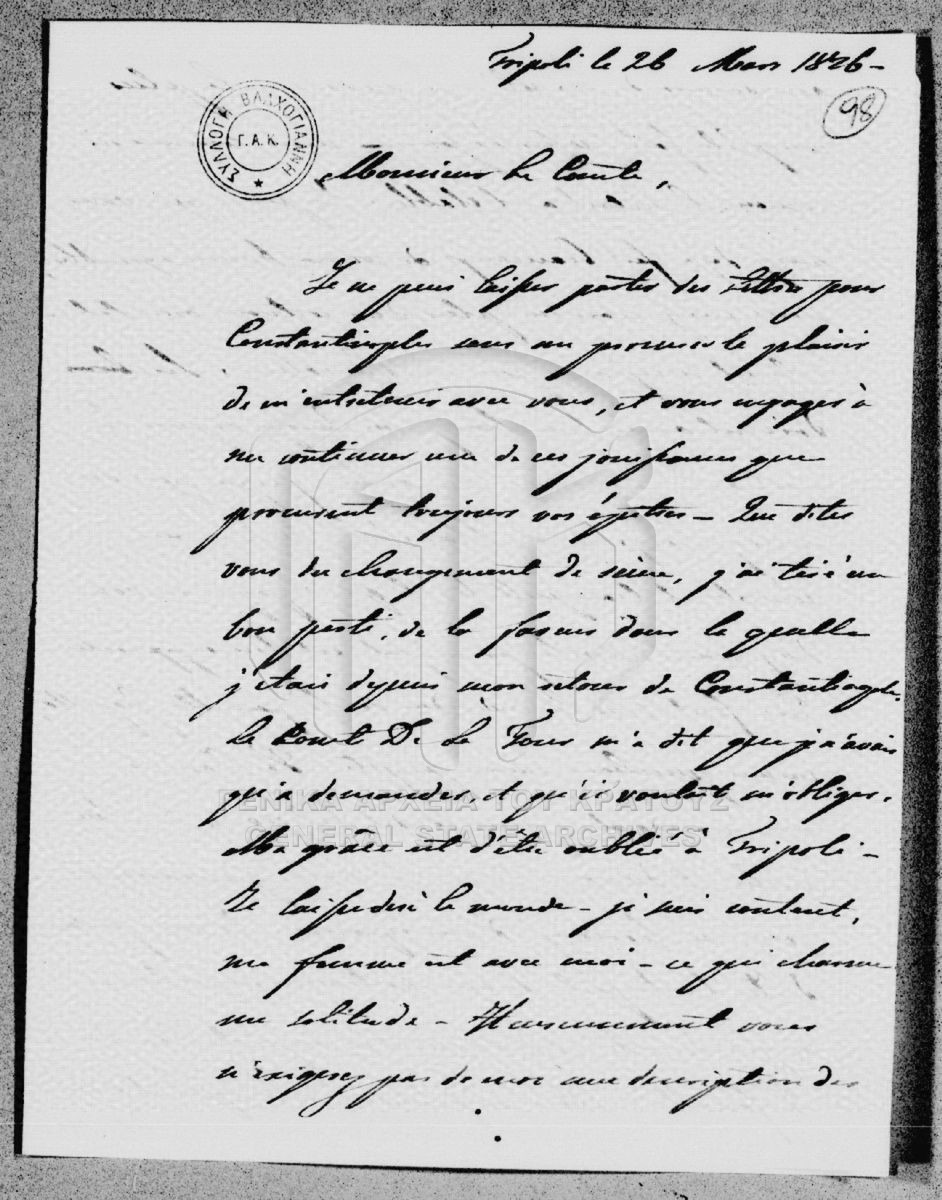 Tripoli le 26 Mars 1826 -
98
ΣΥΛΛΟΓΗ ΒΛΑΧΟΓΙΑΝΝΗ
Γ.Α.Κ.
Monsieur Le Comte,
Je ne puis laisser partir des lettres pour
Constantinople sans me procurer le plaisir
de m'entretenir avec vous, et vous engager à
me continuer une de ces jouissances que
procurent toujours vos épitres - Que dites
vous du changement de scène, j'ai tiré un
bon parti, de la faveur dans la quelle
j'étais depuis mon retour de Constantinople.
Le Comte De La Tour m'a dit que je n'avais
qu'à demander, et qu'il voulait m'obliger.
Ma grâce est d'être oublié à Tripoli -
Je laisse dire le monde - je suis content,
ma femme est avec moi - ce qui charme
ma solitude - Heureusement vous
n'exigerez pas de moi une description des
ΓΕΝΙΚΑ ΑΡΧΕΙΑ ΤΟΥ ΚΡΑΤΟΥΣ
GENERAL STATE ARCHIVES